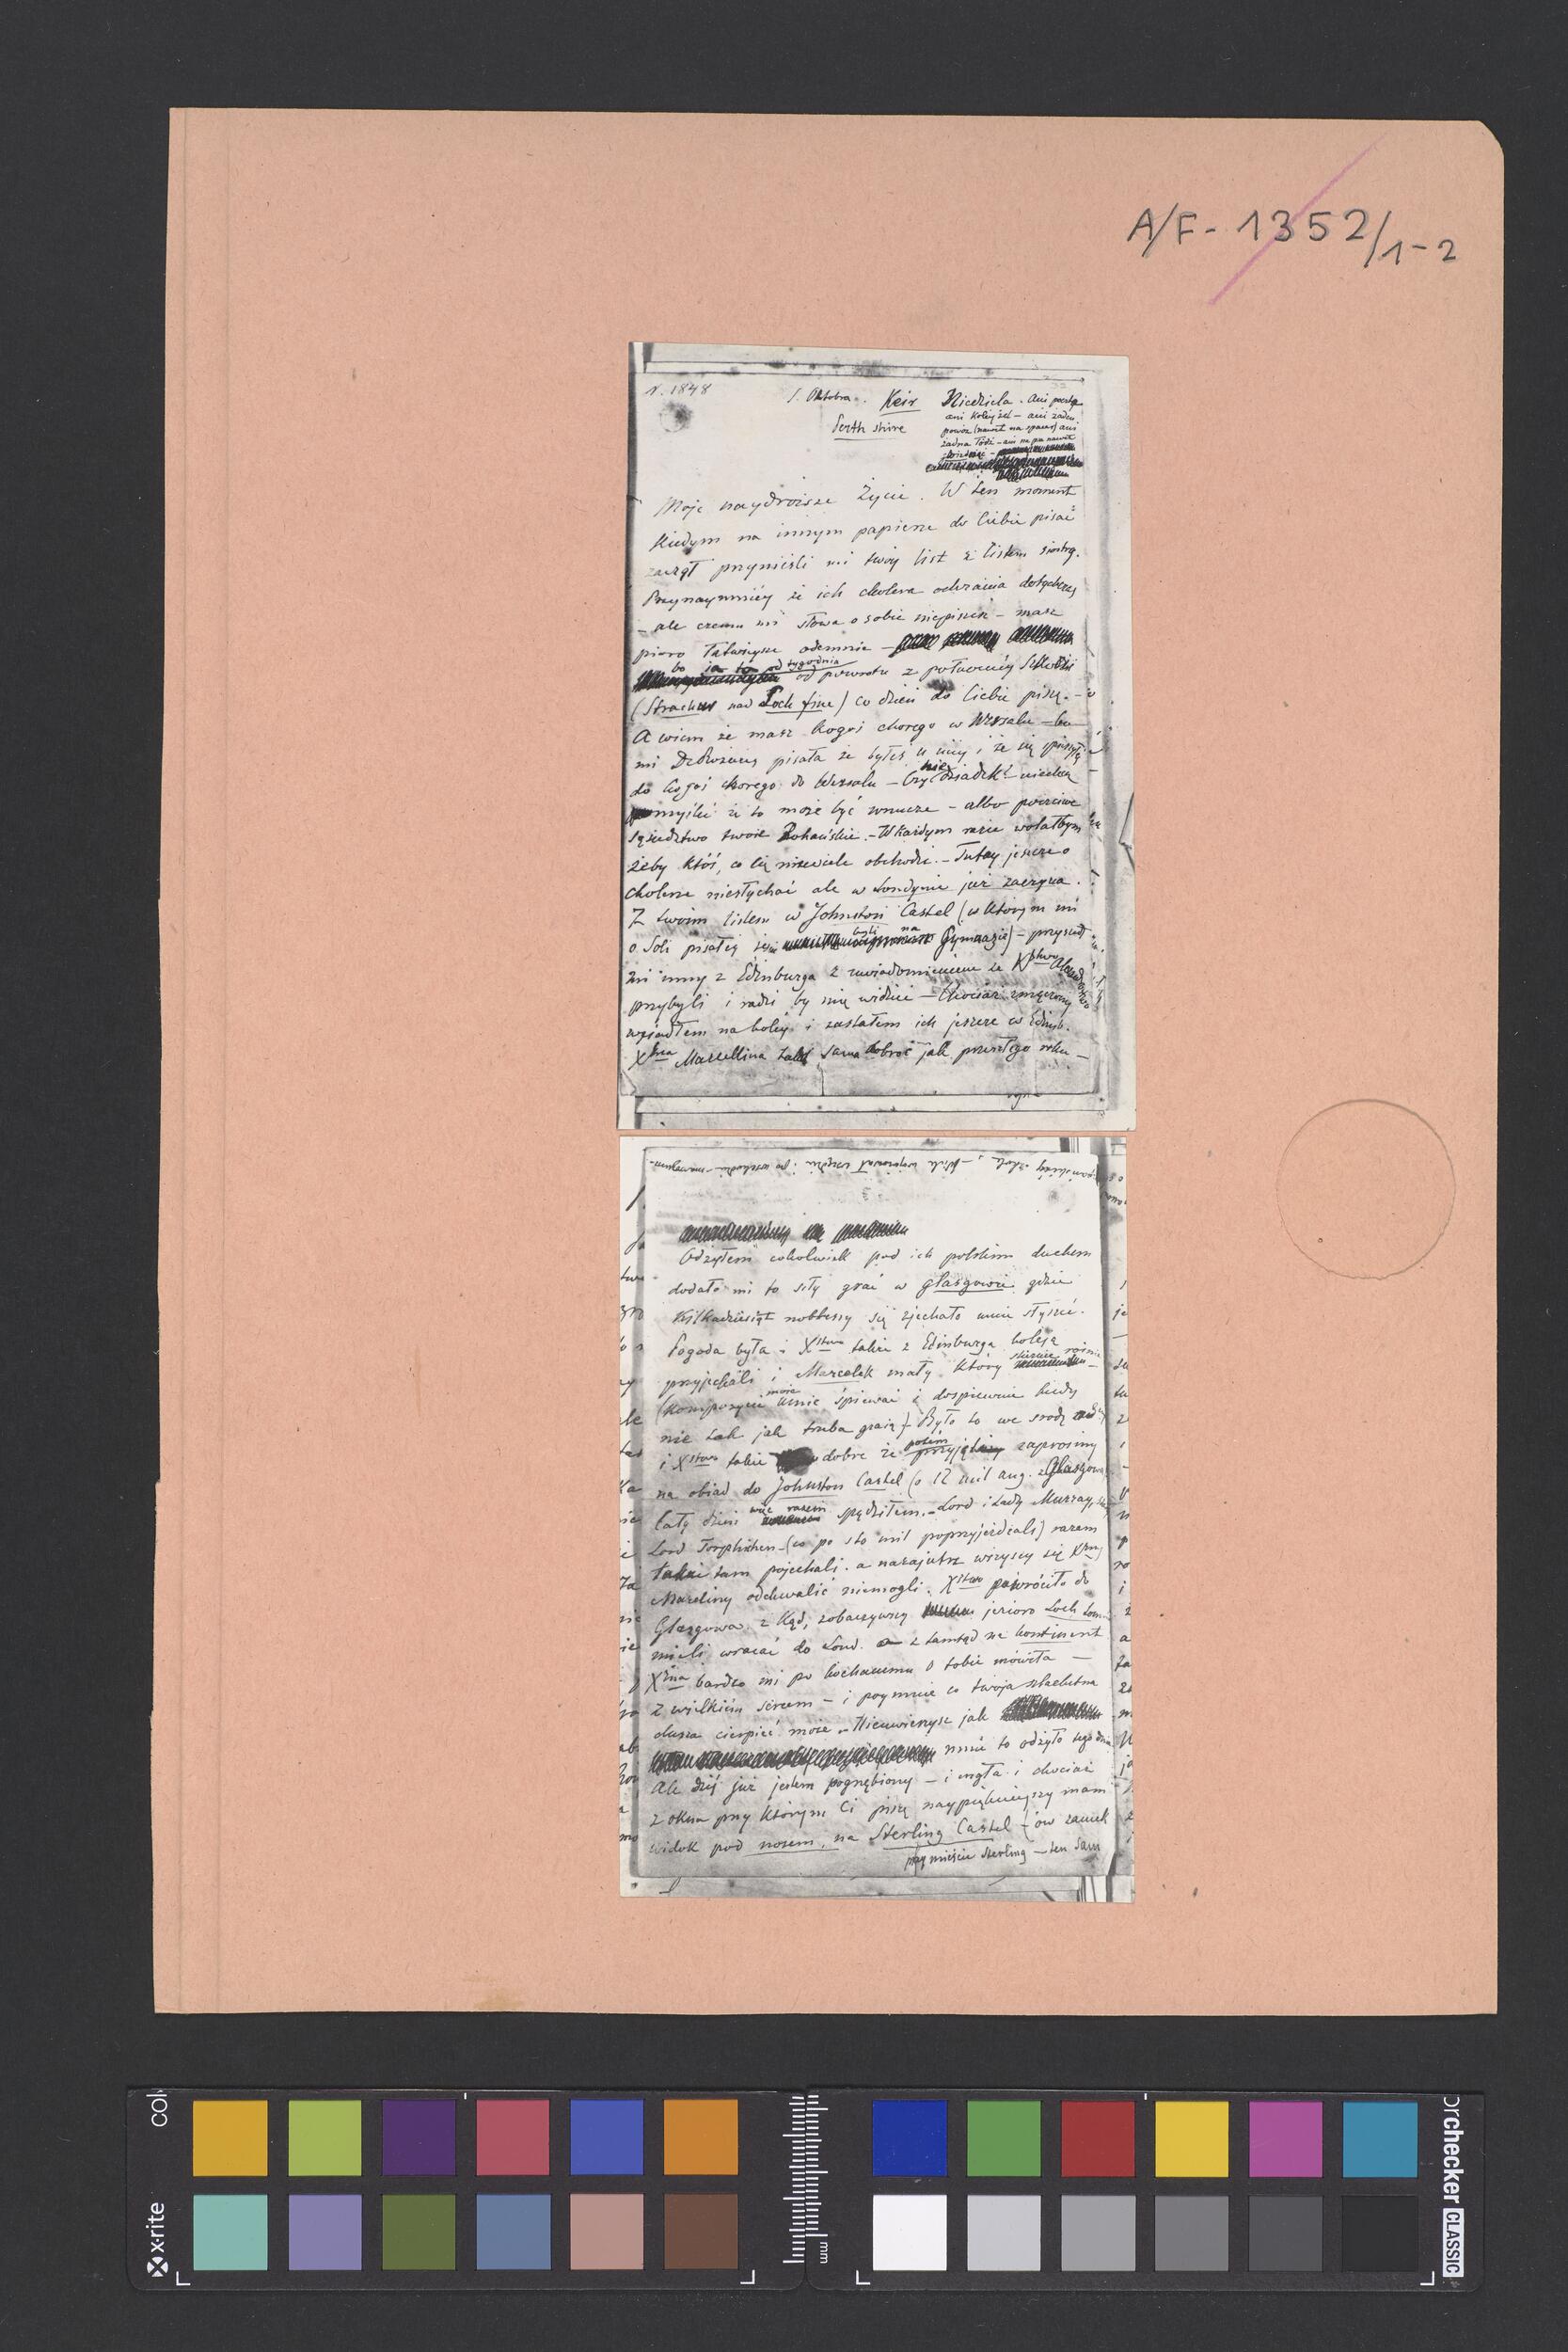 A/F - 1352/1-2
r. 1848
1. Oktobra. Keir Niedziela. Ani poczty
Perth shire
ani koley żel - ani żaden
powóz (nawet na spacer) ani
żadna łódź - ani nawet
Moje naydroższe Życie. W ten moment
kiedym na innym papierze do Ciebie pisać
zaczął przynieśli mi twóy list z listem siostry.
Przynaymniéy że ich cholera ochrania dotychczas
- ale czemu mi słowa o sobie niepiszesz - masz
pióro łatwieysze odemnie -
bo ja to od tygodnia
od powrotu z północnéy Szkocki
(Strachur nad Loch fine) co dzień do Ciebie piszę. -
A wiem że masz kogoś chorego w Wersalu - bo
mi pisała że byłeś u niéy i że się śpieszyłeś
do kogoś chorego do Wersalu - Czy nie dziadek? niechcę
myśleć że to może być wnuczę - albo poczciwe
sąsiedztwo twoie Rohańskie. - W każdym razie wolałbym
żeby któś, co cię niewiele obchodzi. - Tutay jeszcze o
cholerze niesłychać ale w Londynie już zaczyna.
Z twoim listem w Johnston Castel (w którym mi
o Soli pisałeś żeście byli na Gymnazie) - przyszedł
mi inny z Edinburga z uwiadomieniem że Xstwo Alexandrowie
przybyli i radzi by mię widzieć - Chociaż zmęczony
wsiadłem na koléy i zastałem ich jeszcze w Edynb.
Xżna Marcellina zawsze sama dobroć jak przeszłego roku -
Odżyłem cokolwiek pod ich polskim duchem
dodało mi to siły grać w Glasgowie gdzie
kilkadziesiąt noblessy się zjechało mnie słyszeć.
Pogoda była i Xstwo także z Edinburga koleją
przyjechali i Marcelek mały który ślicznie rośnie -
(kompozycie moie umie śpiewać i dospiewuie kiedy
nie tak jak trzeba graią) - Było to we środę
i Xstwo takie dobre że potem przyjęli zaprosiny
na obiad do Johnston Castel (o 12 mil ang. z Glasgowa)
Całą dzień więc razem spędziłem. - Lord i Lady Murray,
Lord Torphichen - (co po sto mil poprzyjeżdżali) razem
także tam pojechali. a nazajutrz wszyscy się Xżny
Marceliny odchwalić niemogli. Xstwo powróciło do
Glasgowa, z kąd, zobaczywszy jezioro Loch Lom
mieli wracać do Lond. a z tamtąd na kontinent
Xżna bardzo mi po kochanemu o tobie mówiła -
z wielkiém sercem - i poymuie co twoja szlachetna
dusza cierpieć może. - Nieuwierzysz jak
mnie to odżyło tego dnia
Ale dziś już jestem pognębiony - i mgła i chociaż
z okna przy którym Ci piszę naypięknieyszy mam
widok pod nosem, na Sterling Castel (ów zamek
przy mieście Sterling - ten sam
x-rite
mm
colorchecker CLASSIC